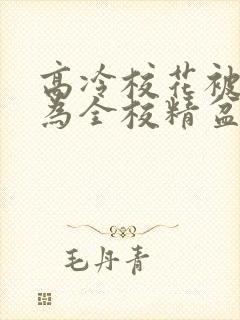 高冷校花被
为全校精盆
毛丹青